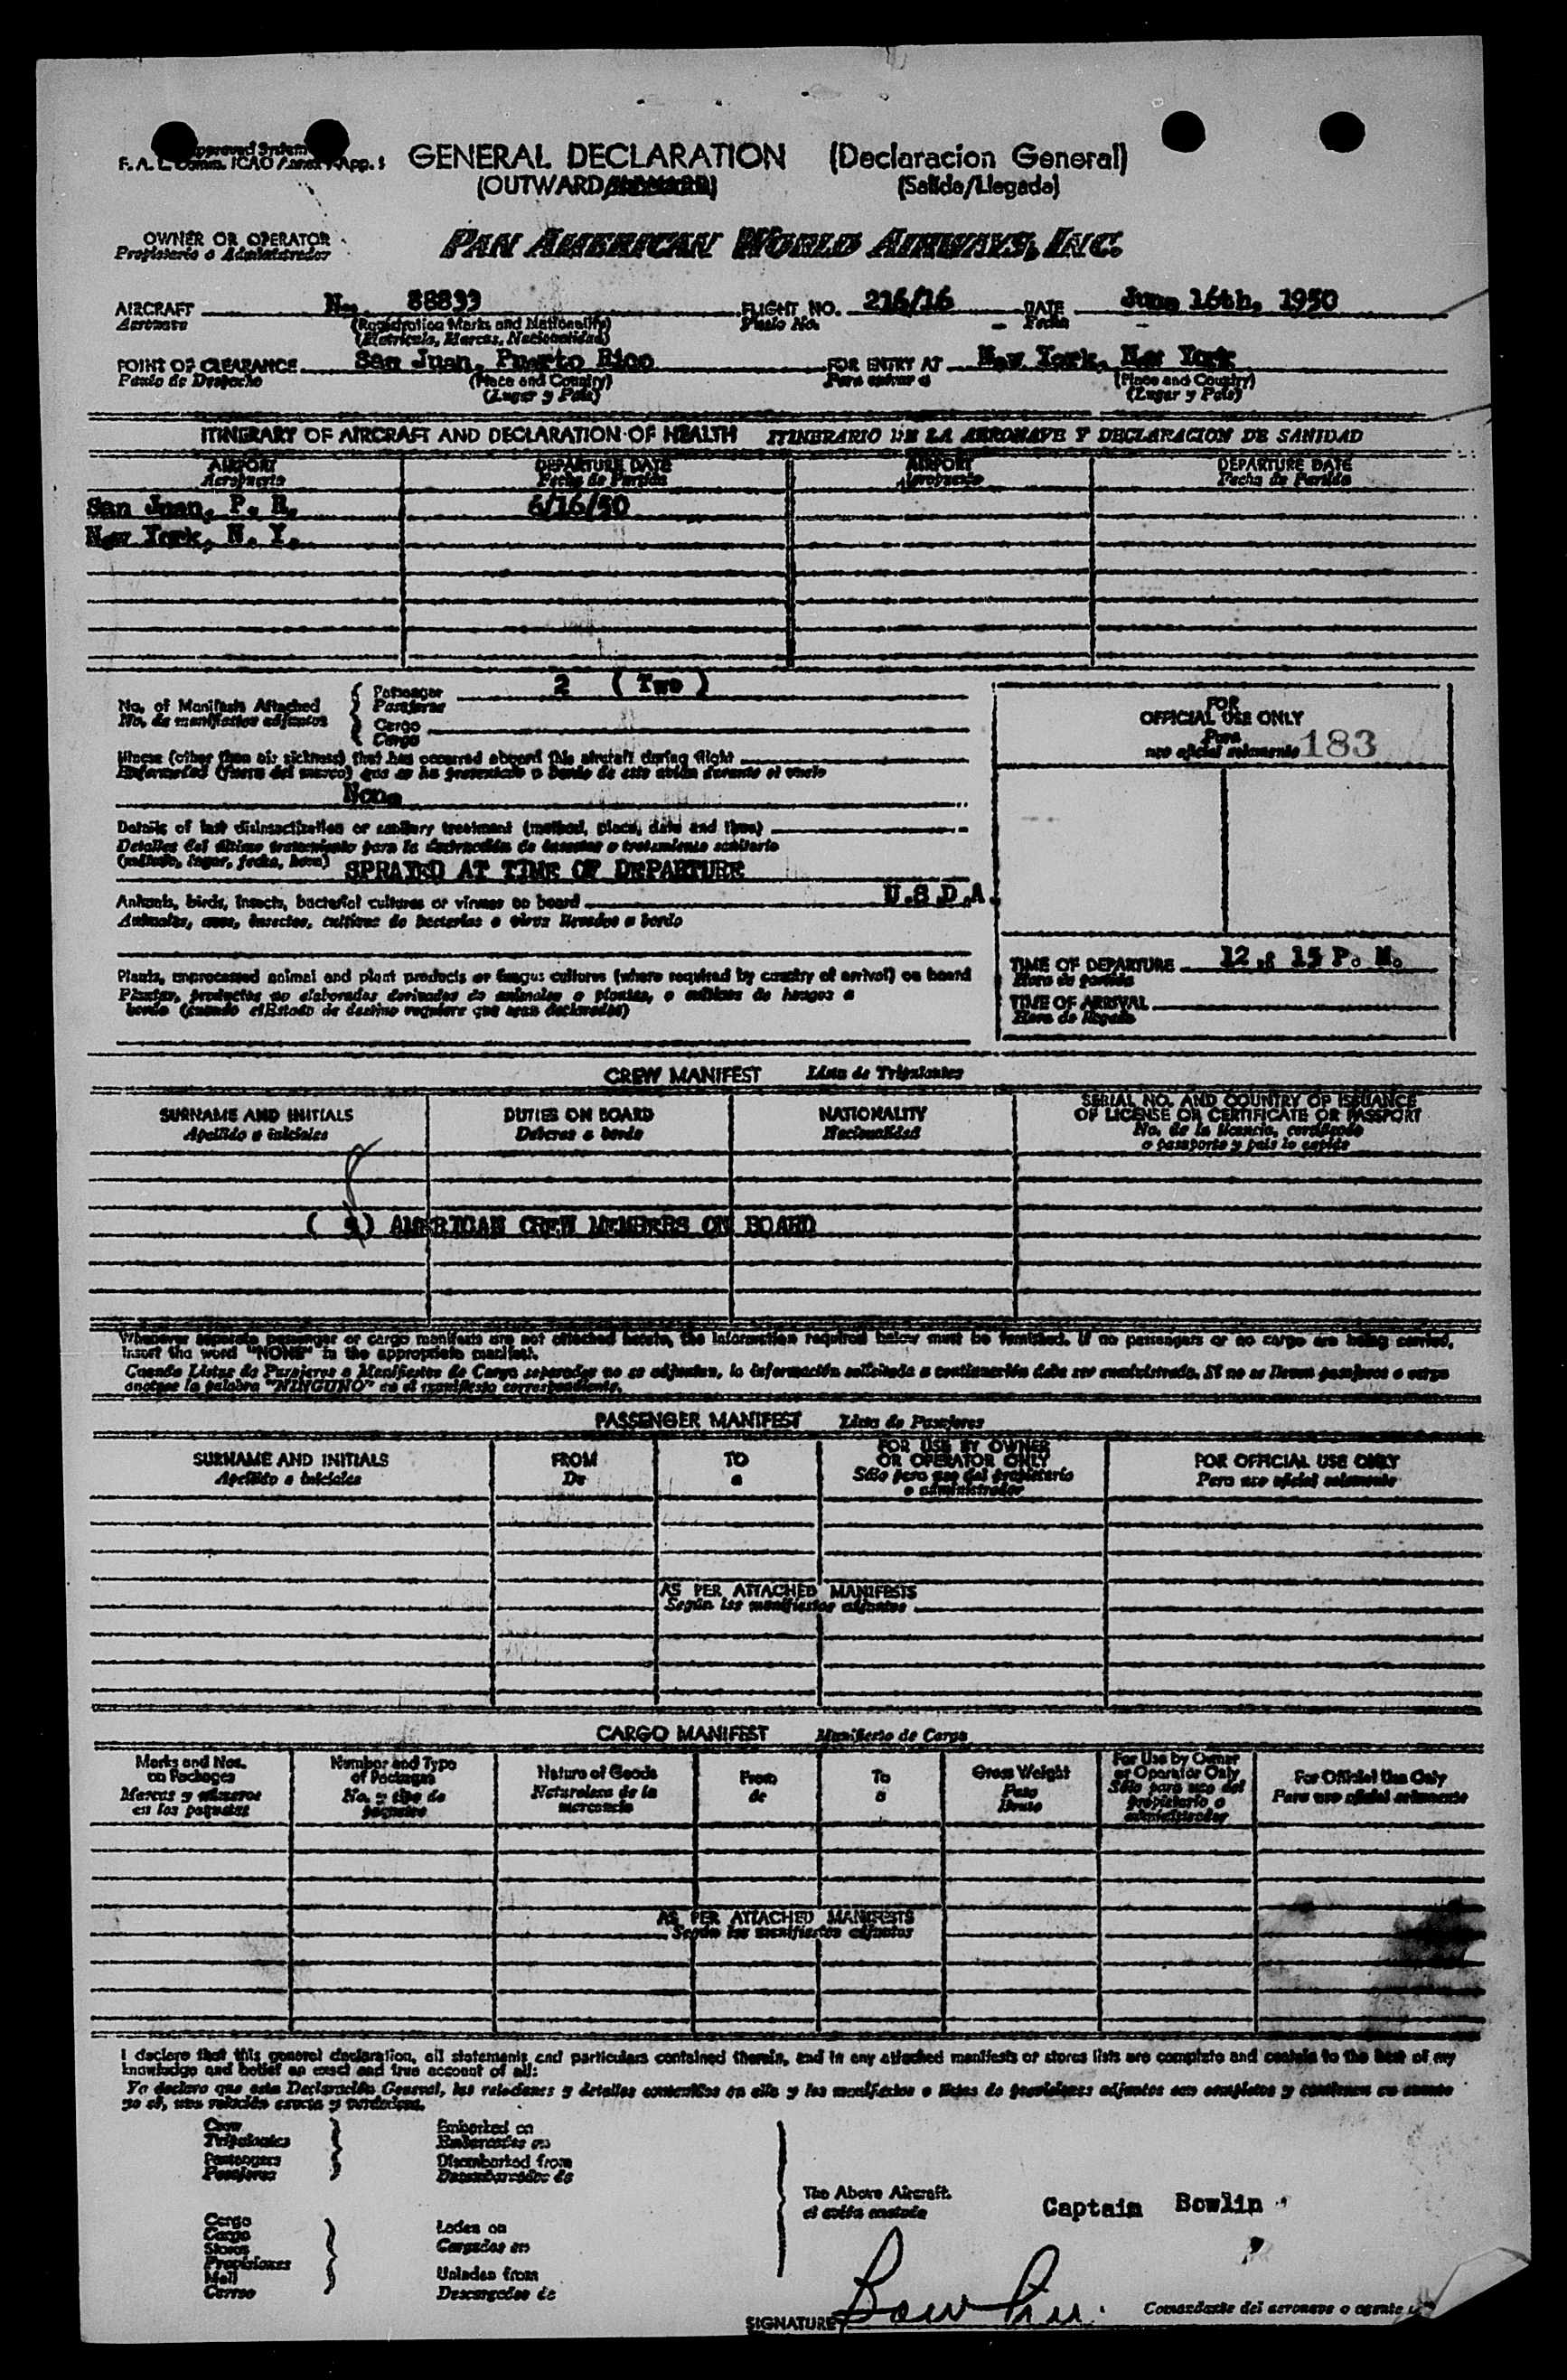 F. A. L. Comm. ICAO Annex App. 1
GENERAL DECLARATION (Declaracion General)
(OUTWARD/INWARD) (Salida/Llegada)
OWNER OR OPERATOR PAN AMERICAN WORLD AIRWAYS, INC.
Propietario o Administrador
AIRCRAFT N- 88833 FLIGHT NO. 216/16 DATE June 16th, 1950
Aeronave (Registration Marks and Nationality) Vuelo No. Fecha
(Matricula, Marcas, Nacionalidad)
POINT OF CLEARANCE San Juan, Puerto Rico FOR ENTRY AT New York, New York
Punto de Despacho (Place and Country) Para entrar a (Place and Country)
(Lugar y Pais) (Lugar y Pais)
ITINERARY OF AIRCRAFT AND DECLARATION OF HEALTH ITINERARIO DE LA AERONAVE Y DECLARACION DE SANIDAD
AIRPORT DEPARTURE DATE AIRPORT DEPARTURE DATE
Aeropuerto Fecha de Partida Aeropuerto Fecha de Partida
San Juan, P. R. 6/16/50
New York, N. Y.
No. of Manifests Attached Passenger 2 (Two)
No. de manifiestos adjuntos Pasajeros
Cargo
Cargo
FOR
OFFICIAL USE ONLY
Para
uso oficial solamente 183
Illness (other than air sickness) that has occurred aboard this aircraft during flight
Enfermedad (fuera del mareo) que se ha presentado a bordo de este avión durante el vuelo
None
Details of last disinsectization or sanitary treatment (method, place, date and time)
Detalles del último tratamiento para la destrucción de insectos o tratamiento sanitario
(método, lugar, fecha, hora) SPRAYED AT TIME OF DEPARTURE
Animals, birds, insects, bacterial cultures or viruses on board U.S.D.A.
Animales, aves, insectos, cultivos de bacterias o virus llevados a bordo
Plants, unprocessed animal and plant products or fungus cultures (where required by country of arrival) on board
Plantas, productos no elaborados derivados de animales o plantas, o cultivos de hongos a
bordo (cuando el Estado de destino requiere que sean declarados)
TIME OF DEPARTURE 12 : 15 P. M.
Hora de partida
TIME OF ARRIVAL
Hora de llegada
CREW MANIFEST Lista de Tripulantes
SURNAME AND INITIALS DUTIES ON BOARD NATIONALITY SERIAL NO. AND COUNTRY OF ISSUANCE
OF LICENSE OR CERTIFICATE OR PASSPORT
Apellido e iniciales Deberes a bordo Nacionalidad No. de la licencia, certificado
o pasaporte y pais lo expide
8
( ) AMERICAN CREW MEMBERS ON BOARD
Whenever separate passenger or cargo manifests are not attached hereto, the information required below must be furnished. If no passengers or no cargo are being carried,
insert the word "NONE" in the appropriate manifest.
Cuando Listas de Pasajeros o Manifiestos de Carga separados no se adjuntan, la información solicitada a continuación debe ser suministrada. Si no se llevan pasajeros o carga
anotese la palabra "NINGUNO" en el manifiesto correspondiente.
PASSENGER MANIFEST Lista de Pasajeros
SURNAME AND INITIALS FROM TO FOR USE BY OWNER OR OPERATOR ONLY FOR OFFICIAL USE ONLY
Apellido e iniciales De a Sólo para uso del propietario o administrador Para uso oficial solamente
AS PER ATTACHED MANIFESTS
Según los manifiestos adjuntos
CARGO MANIFEST Manifiesto de Carga
Marks and Nos. on Packages Number and Type of Packages Nature of Goods From To Gross Weight For Use by Owner or Operator Only For Official Use Only
Marcas y números en los paquetes No. y tipo de paquetes Naturaleza de la mercancía de a Peso Bruto Sólo para uso del propietario o administrador Para uso oficial solamente
AS PER ATTACHED MANIFESTS
Según los manifiestos adjuntos
I declare that this general declaration, all statements and particulars contained therein, and in any attached manifests or stores lists are complete and contain to the best of my
knowledge and belief an exact and true account of all:
Yo declaro que esta Declaración General, las relaciones y detalles contenidos en ella y los manifiestos o listas de provisiones adjuntos son completos y contienen en cuanto
yo sé, una relación exacta y verdadera.
Crew Embarked on
Tripulantes Embarcados en
Passengers Disembarked from
Pasajeros Desembarcados de
The Above Aircraft.
el avión anotado
Captain Bowlin
Cargo
Cargo Laden on
Stores Cargados en
Provisiones
Mail Unladen from
Correo Descargados de
SIGNATURE Bowlin Comandante del aeronave o agente